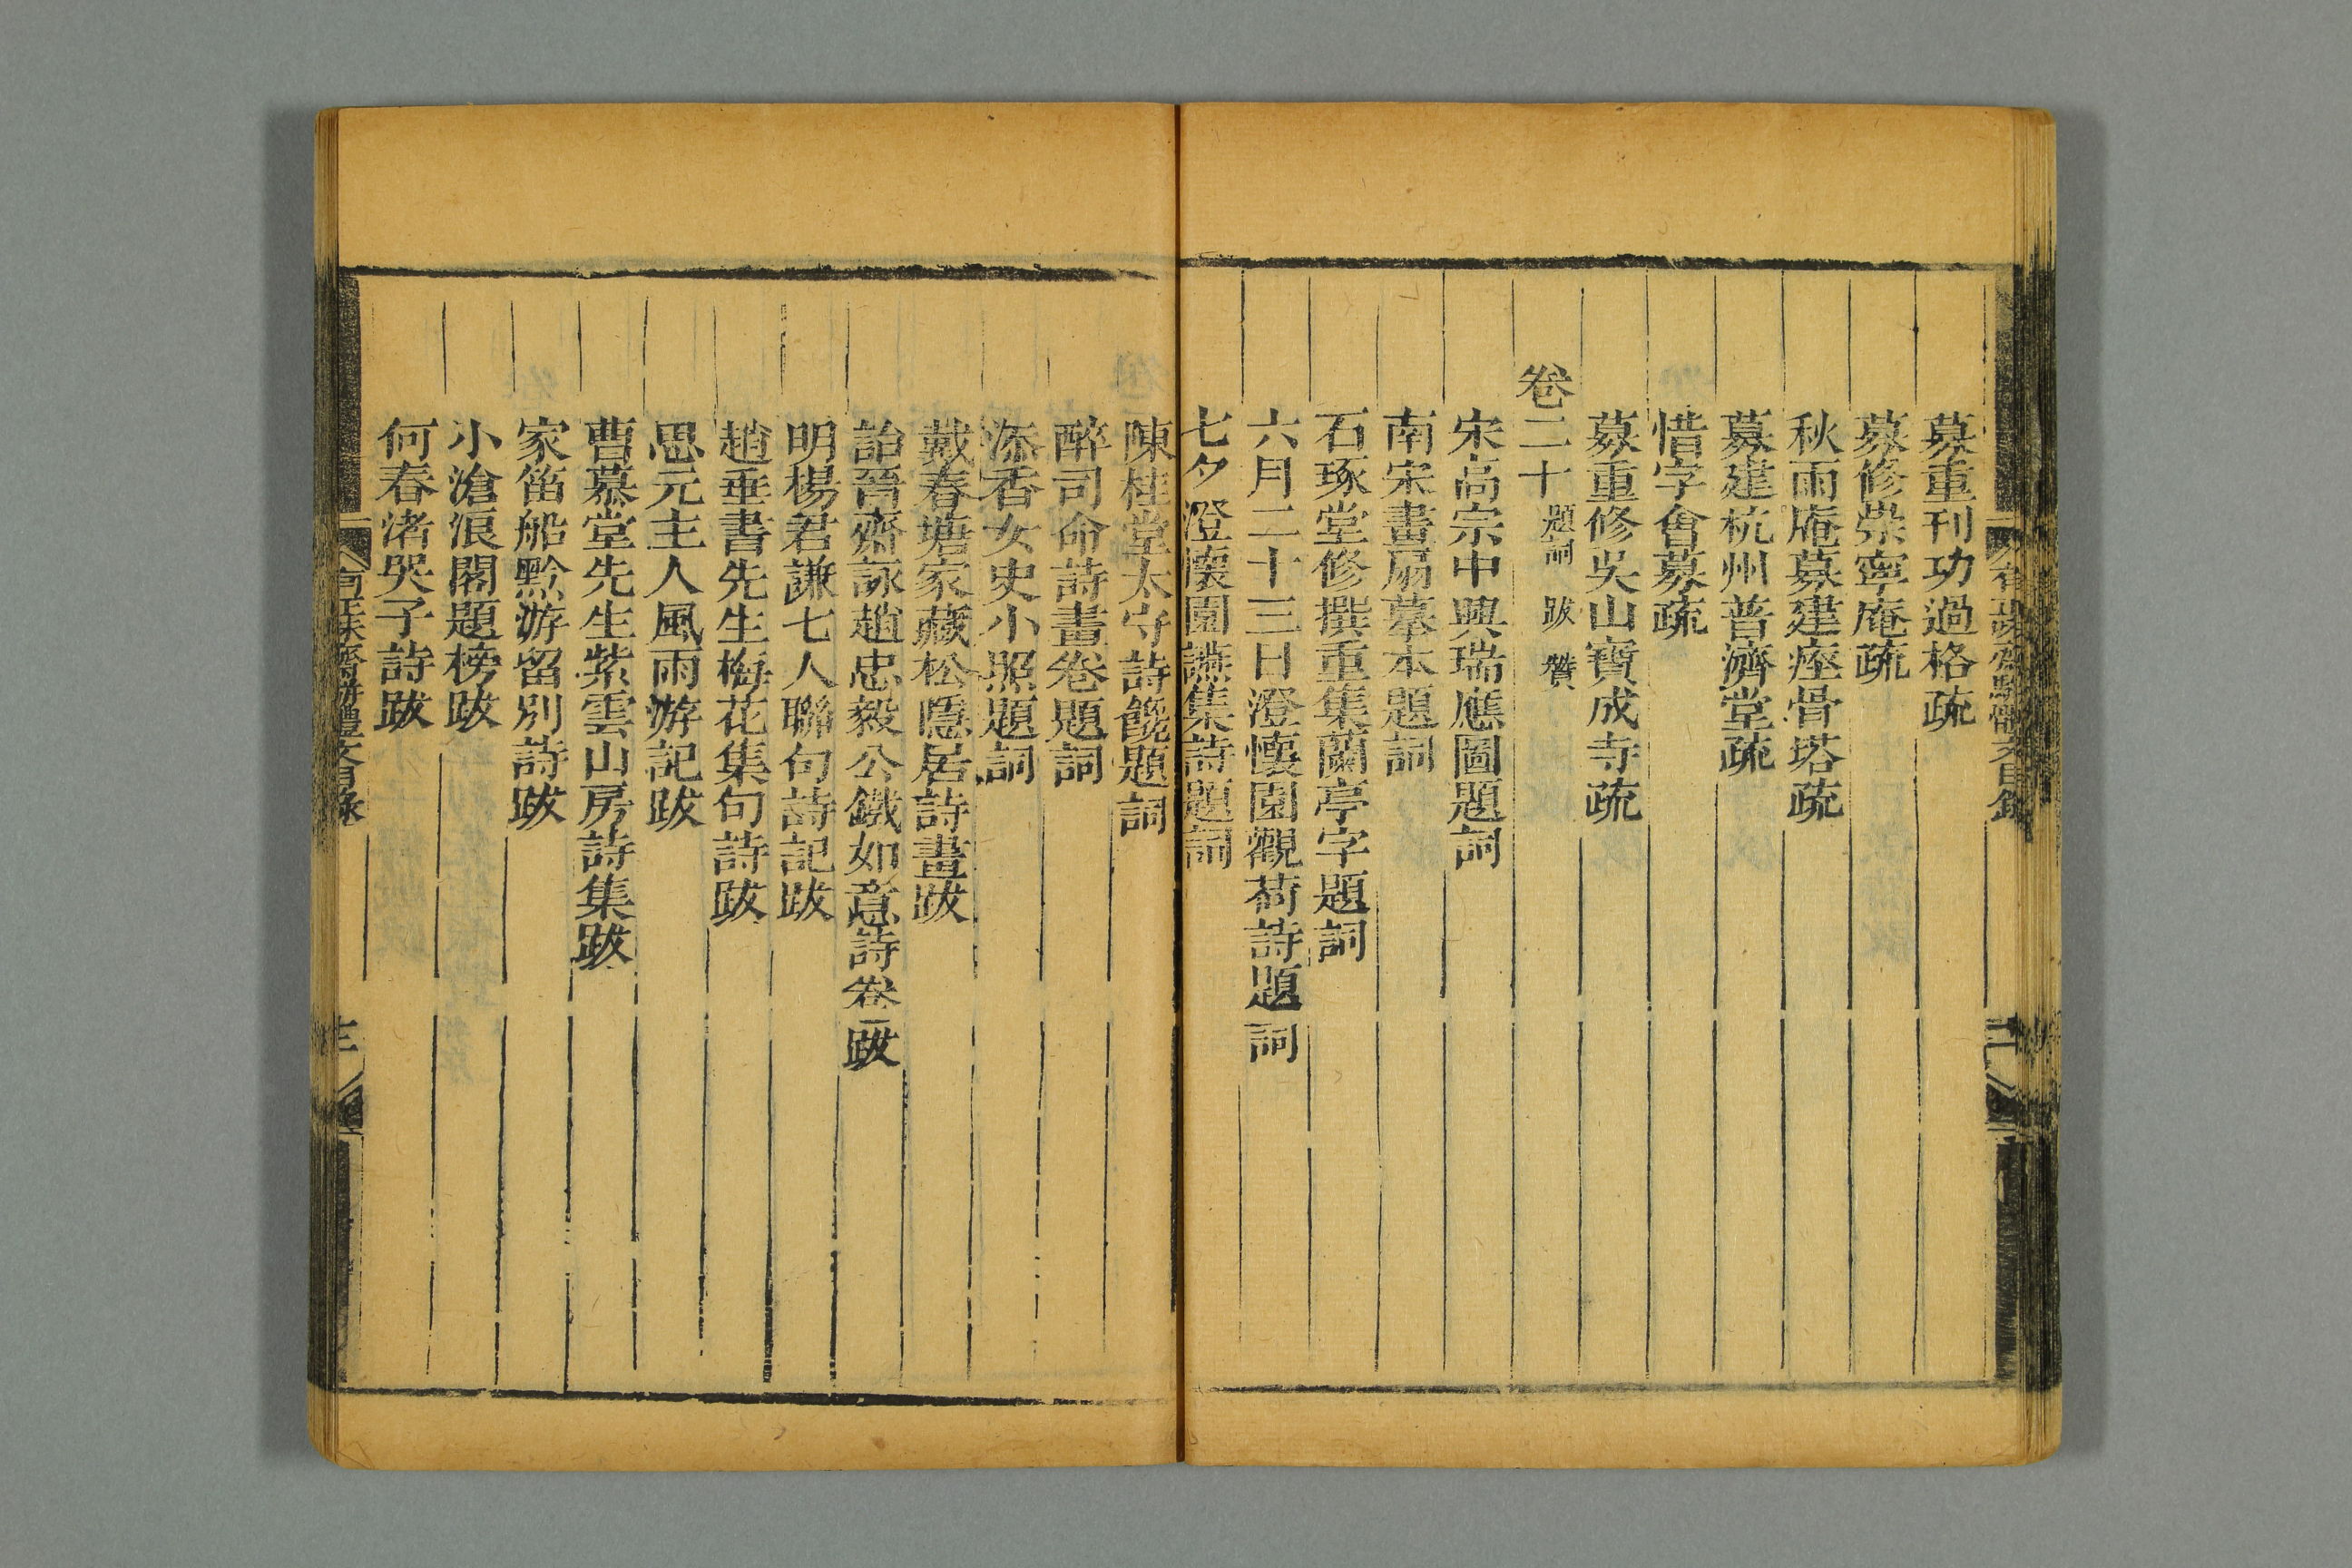 募重刊功過格疏
募修崇寧庵疏
秋雨庵募建瘞骨塔疏
募建杭州普濟堂疏
惜字會募疏
募重修吳山寶成寺疏
卷二十 題詞 跋 贊
宋高宗中興瑞應圖題詞
南宋畫扇摹本題詞
石琢堂修撰重集蘭亭字題詞
六月二十三日澄懷園觀荷詩題詞
七夕澄懷園讌集詩題詞
陳桂堂太守詩龕題詞
醉司命詩畫卷題詞
添香女史小照題詞
戴春塘家藏松隱居詩畫跋
詒晉齋詠趙忠毅公鐵如意詩卷跋
明楊君謙七人聯句詩記跋
趙垂書先生梅花集句詩跋
思元主人風雨游記跋
曹慕堂先生紫雲山房詩集跋
家笛船黔游留別詩跋
小滄浪閣題榜跋
何春渚哭子詩跋